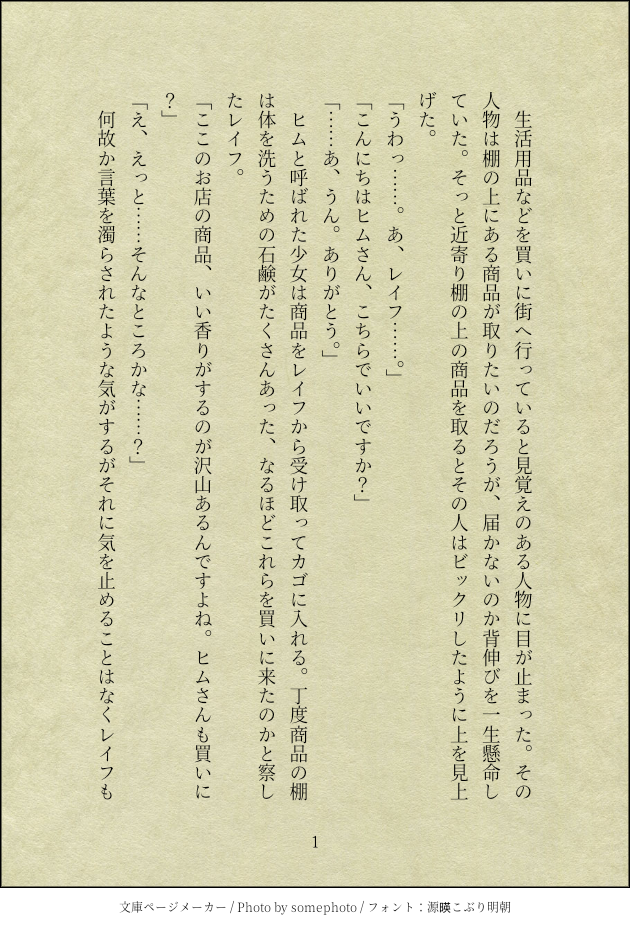 生活用品などを買いに街へ行っていると見覚えのある人物に目が止まった。その
人物は棚の上にある商品が取りたいのだろうが、届かないのか背伸びを一生懸命し
ていた。そっと近寄り棚の上の商品を取るとその人はビックリしたように上を見上
げた。
「うわっ……。あ、レイフ……。」
「こんにちはヒムさん、こちらでいいですか？」
「……あ、うん。ありがとう。」
　ヒムと呼ばれた少女は商品をレイフから受け取ってカゴに入れる。丁度商品の棚
は体を洗うための石鹸がたくさんあった、なるほどこれらを買いに来たのかと察し
たレイフ。
「ここのお店の商品、いい香りがするのが沢山あるんですよね。ヒムさんも買いに
？」
「え、えっと……そんなところかな……？」
　何故か言葉を濁らされたような気がするがそれに気を止めることはなくレイフも
1
文庫ページメーカー / Photo by somephoto / フォント：源暎こぶり明朝